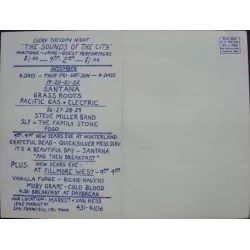 EVERY TUESDAY NIGHT
"THE SOUNDS OF THE CITY"
AUDITIONS - JAMS - GUEST PERFORMERS
$1.00 $1.00
DECEMBER
4 DAYS - THUR-FRI-SAT-SUN - 4 DAYS
19-20-21-22
SANTANA
GRASS ROOTS
PACIFIC GAS & ELECTRIC
26-27-28-29
STEVE MILLER BAND
SLY & THE FAMILY STONE
POGO
NEW YEARS EVE AT WINTERLAND
GRATEFUL DEAD - QUICKSILVER MESS. SERV.
IT'S A BEAUTIFUL DAY - SANTANA
"AND THEN BREAKFAST"
PLUS: NEW YEARS EVE -
AT FILLMORE WEST -
VANILLA FUDGE - RICHIE HAVENS
MOBY GRAPE - COLD BLOOD
ALSO BREAKFAST AT DAYBREAK
OUR LOCATION: MARKET & VAN NESS
1545 MARKET ST.
SAN FRANCISCO, CAL.